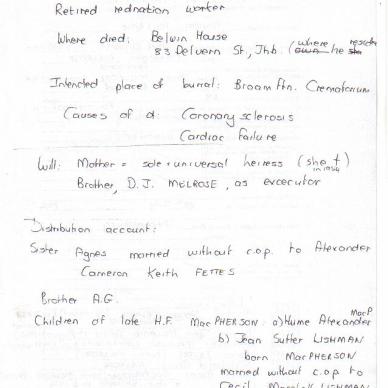 Retired rednation worker
Where died: Belwin House
83 Delvern St., Jhb. (where he resides
Intended place of burial: Braamftn. Crematorium
Causes of d: Coronary sclerosis
Cardiac failure
Will: Mother = sole + universal heiress (she †
in 1954
Brother, D.J. MELROSE, as excecutor
Distribution account:
Sister Agnes married without c.o.p. to Alexander
Cameron Keith FETTES
Brother A.G.
Children of late H.F. MacPHERSON a) Hume Alexander MacP
b) Jean Sutter LISHMAN
born MacPHERSON
married without c.o.p to
Cecil LISHMAN